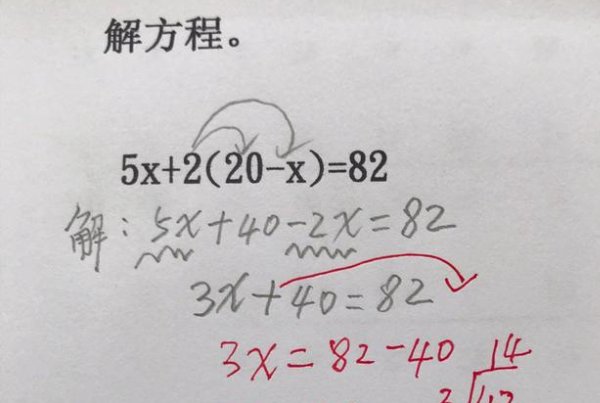 解方程。
5x+2(20-x)=82
解：5x+40-2x=82
3x+40=82
3x=82-40
14